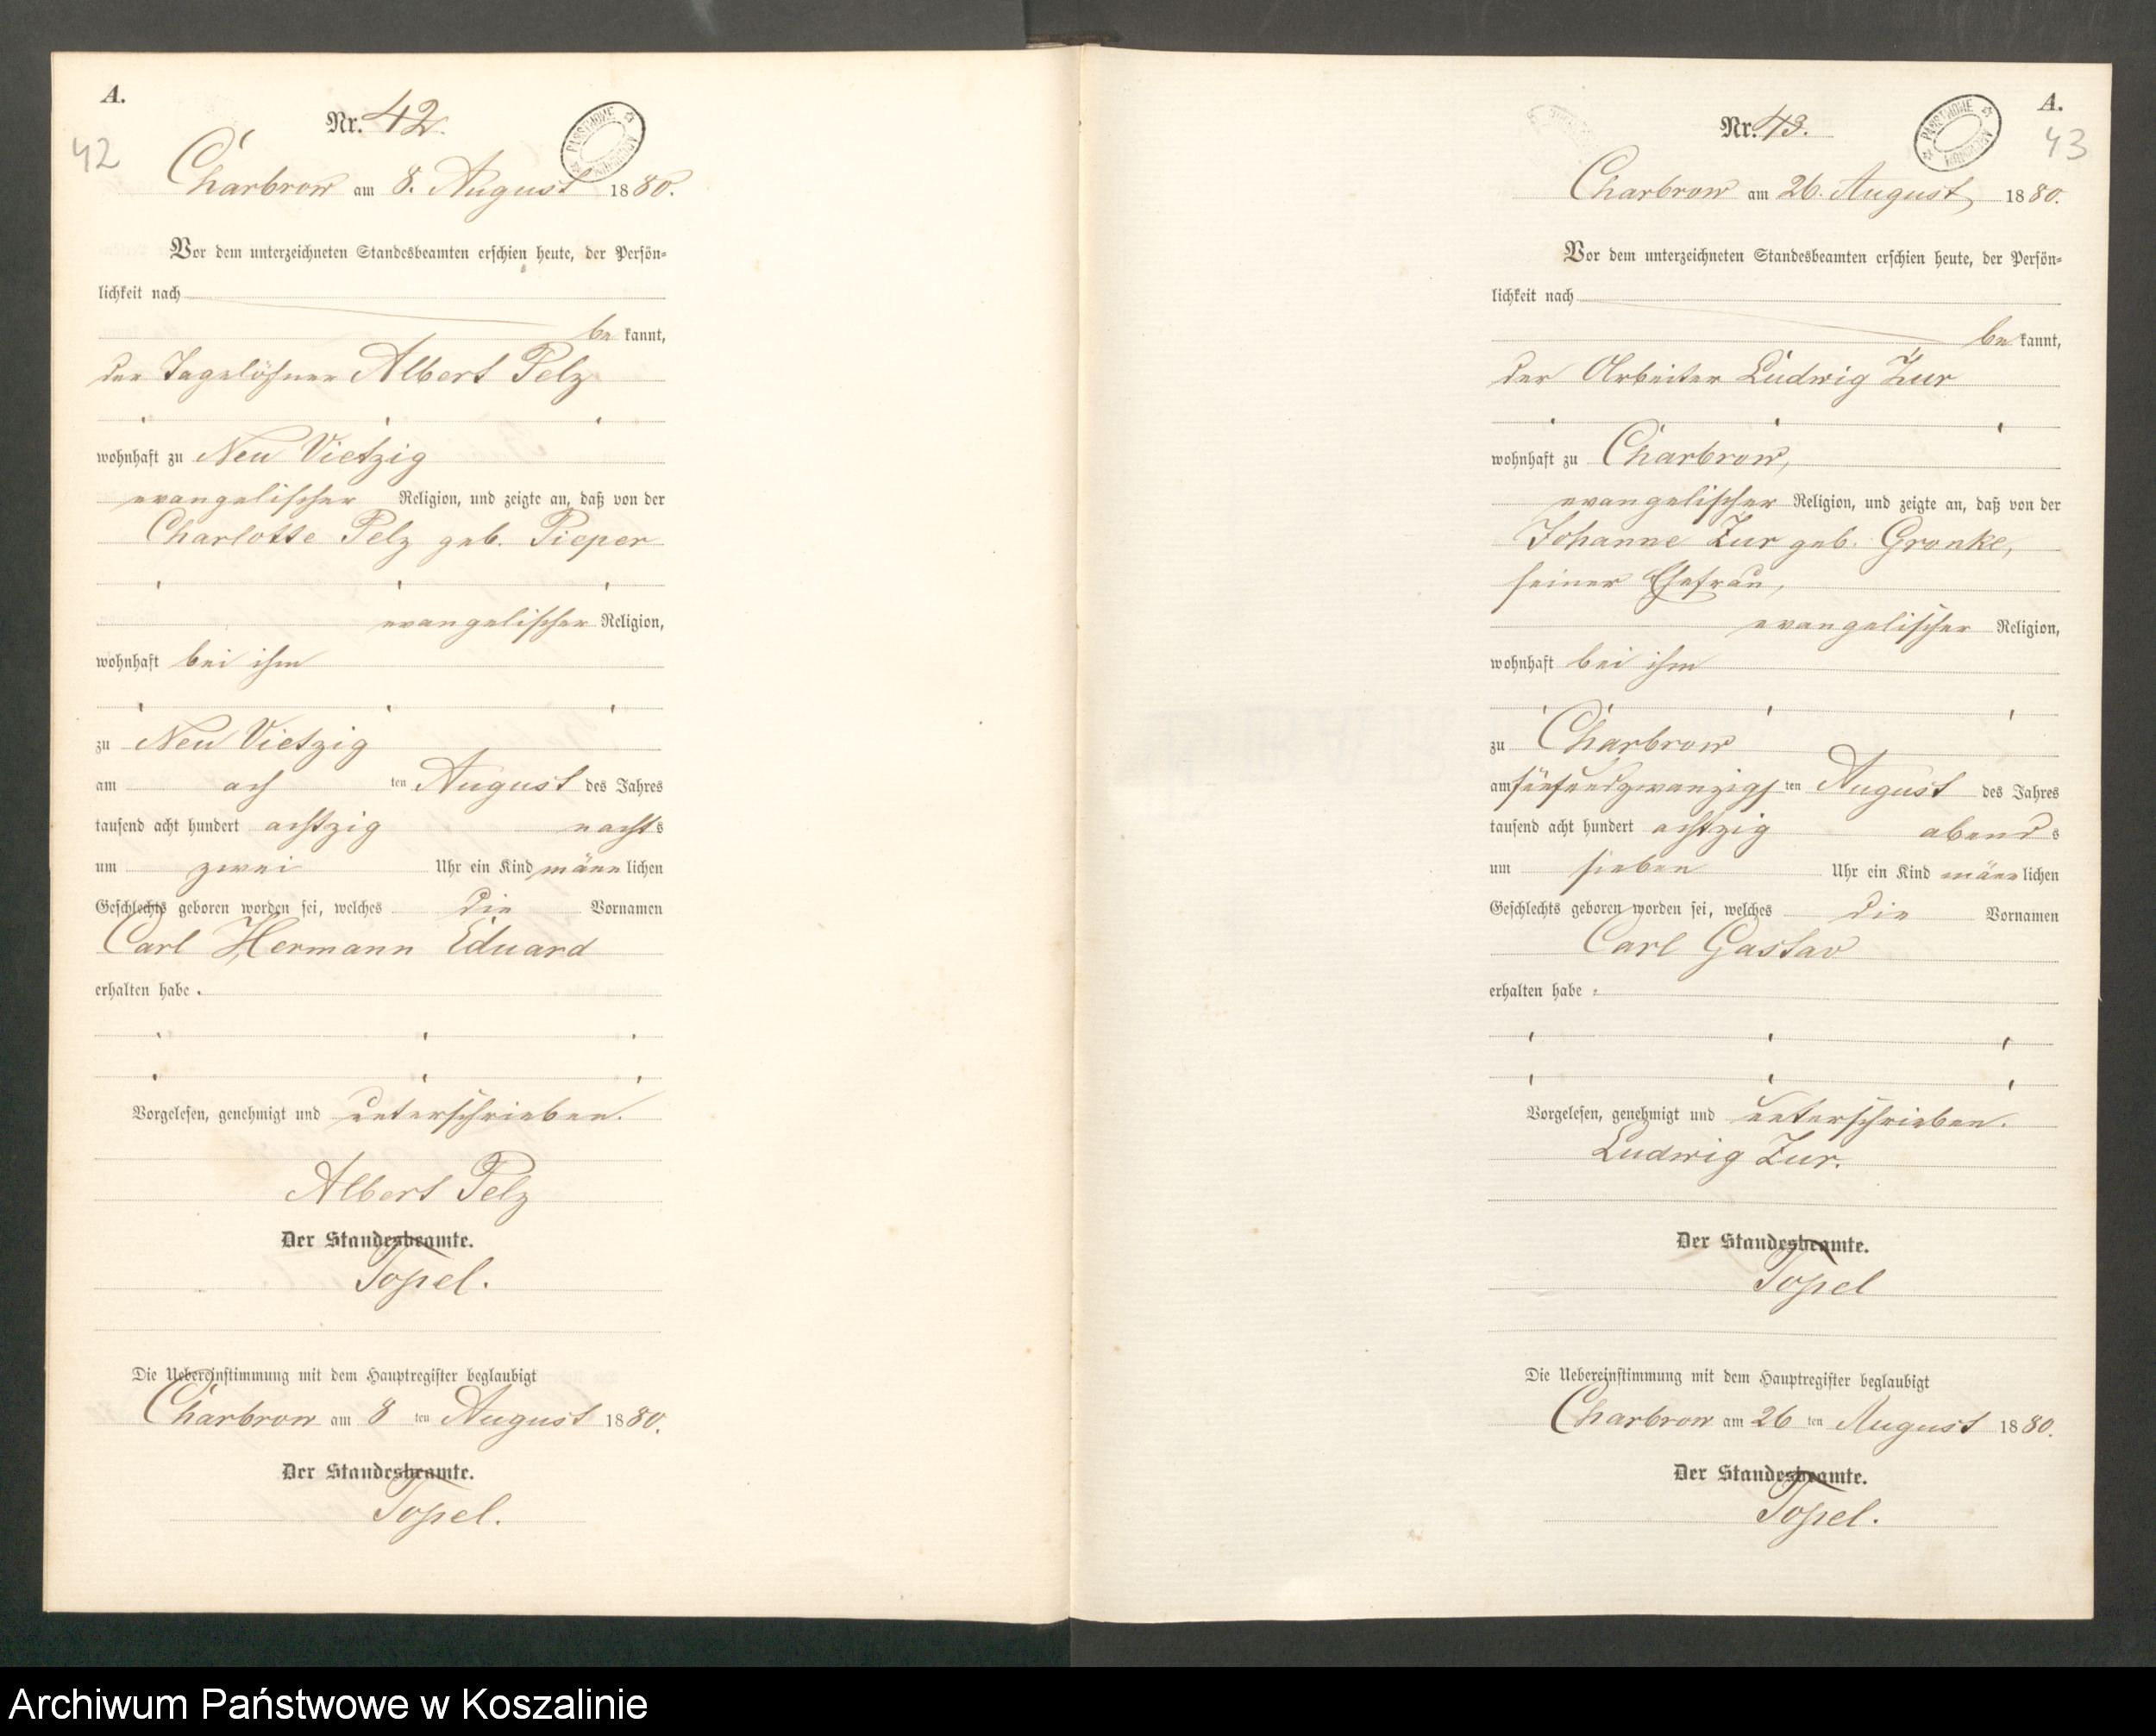 A.
Nr. 42.
42
Charbrow am 8. August 1880.
Vor dem unterzeichneten Standesbeamten erschien heute, der Persön-
lichkeit nach
be kannt,
der Tagelöhner Albert Pelz
wohnhaft zu Neu Vietzig
evangelischer Religion, und zeigte an, daß von der
Charlotte Pelz geb. Pieper
evangelischer Religion,
wohnhaft bei ihm
zu Neu Vietzig
am ach ten August des Jahres
tausend acht hundert achtzig nachts
um zwei Uhr ein Kind männlichen
Geschlechts geboren worden sei, welches die Vornamen
Carl Hermann Eduard
erhalten habe.
Vorgelesen, genehmigt und unterschrieben.
Albert Pelz
Der Standesbeamte.
Topel.
Die Uebereinstimmung mit dem Hauptregister beglaubigt
Charbrow am 8 ten August 1880.
Der Standesbeamte.
Topel.
A.
Nr. 43.
43
Charbrow am 26. August 1880.
Vor dem unterzeichneten Standesbeamten erschien heute, der Persön-
lichkeit nach
be kannt,
der Arbeiter Ludwig Zur
wohnhaft zu Charbrow,
evangelischer Religion, und zeigte an, daß von der
Johanne Zur geb. Gronke,
seiner Ehefrau,
evangelischer Religion,
wohnhaft bei ihm
zu Charbrow
am fünfundzwanzigs ten August des Jahres
tausend acht hundert achtzig abends
um sieben Uhr ein Kind männlichen
Geschlechts geboren worden sei, welches die Vornamen
Carl Gustav
erhalten habe.
Vorgelesen, genehmigt und unterschrieben.
Ludwig Zur.
Der Standesbeamte.
Topel
Die Uebereinstimmung mit dem Hauptregister beglaubigt
Charbrow am 26 ten August 1880.
Der Standesbeamte.
Topel.
Archiwum Państwowe w Koszalinie